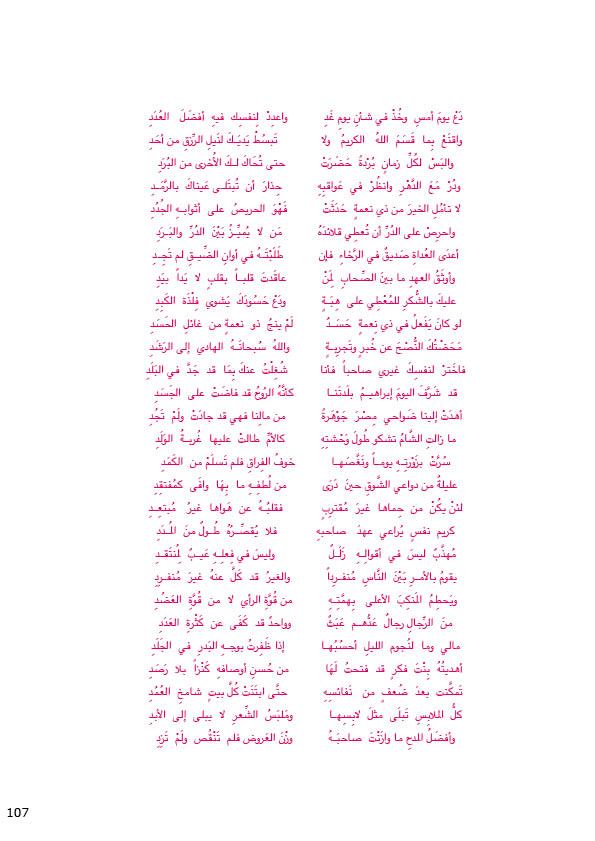 دَعْ يومَ أمسِ وخُذْ في شـأنِ يومِ غَدِ واعدِدْ لِنفسِك فيهِ أفضلَ العُدَدِ
واقنَعْ بِما قَسَمَ اللهُ الكريمُ ولا تَبسُطْ يَديَـكَ لنَيلِ الرِّزقِ من أحَدِ
والبَسْ لِكُلِّ زمانٍ بُرْدةً حَضَرَتْ حتى تُحَاكَ لـكَ الأُخرى من البُرَدِ
ودُرْ مَعَ الدَّهْرِ وانظُرْ في عَواقبِهِ حِذارَ أن تُبتَلـى عَيناكَ بالرَّمَـدِ
لا تأمُلِ الخيرَ من ذي نعمةٍ حَدَثَتْ فَهْوَ الحريصُ على أثوابـهِ الجُدُدِ
واحرِصْ على الدُّرِّ أن تُعطِي قلائدَهُ مَن لا يُميِّـزُ بَيْنَ الدُّرِّ والبَـرَدِ
أعدَى العُداةِ صَديقٌ في الرَّخاءِ فإن طَلَبْتَـهُ في أوانِ الضِّيـقِ لم تَجِـدِ
وأوثَقُ العهدِ ما بينَ الصِّحابِ لِمَنْ عاقَدتَ قلبـاً بقلبٍ لا يَداً بيَدِ
عليكَ بالشُّكرِ للمُعْطِي على هِبَـةٍ ودَعْ حَسُودَكَ يَشوي فِلْذَةَ الكَبِدِ
لو كانَ يَفعلُ في ذي نِعمةٍ حَسَـدٌ لَمْ ينجُ ذو نعمةٍ من غائلِ الحَسَدِ
مَحَضتُكَ النُّصْحَ عن خُبرٍ وتَجرِبـةٍ واللهُ سُبحانَـهُ الهادي إلى الرَشَدِ
فاخْتَرْ لنفسِكَ غيري صاحباً فأنا شُغِلْتُ عنكَ بِمَا قد جَدَّ في البَلَدِ
قد شَرَّفَ اليومَ إبراهيـمُ بلدَتَنـا كأنَّهُ الرُوحُ قد فاضَتْ على الجَسَدِ
أهدَتْ إلينا ضَواحي مِصْرَ جَوْهَرةً من مالِنا فهي قد جادَتْ ولَمْ تَجُدِ
ما زالتِ الشَّامُ تشكو طُولَ وَحْشتِهِ كالأمِّ طالَتْ عليها غُربـةُ الوَلَدِ
سُرَّتْ بزَوْرتِـهِ يومـاً ونَغَّصَهـا خوفُ الفراقِ فلم تَسلَمْ من الكَمَدِ
عليلةٌ من دواعي الشَّوقِ حينَ دَرَى من لُطفِـهِ ما بِهَا وافَى كمُفتقِدِ
لئنْ يكُنْ من حِماها غيرَ مُقتربٍ فقلبُـهُ عن هَواها غيرُ مُبتعِـدِ
كريمِ نفسٍ يُراعي عهدَ صاحبهِ فلا يُقصِّـرُهُ طُـولٌ منَ المُـدَدِ
مُهذَّبٌ ليسَ في أقوالِـهِ زَلَـلٌ وليسَ في فِعلِـهِ عَيـبٌ لِمُنتَقـدِ
يقومُ بالأمـرِ بَيْنَ النَّاسِ مُنفـرِداً والغيرُ قد كَلَّ عنهُ غيرَ مُنفـرِدِ
ويَحطِمُ المَنكبَ الأعلى بِهِمَّتِـهِ من قُوَّةِ الرأيِ لا من قُوَّةِ العَضُدِ
منَ الرِّجالِ رجالٌ عَدُّهُـم عَبَثٌ وواحدٌ قد كَفَى عن كَثْرةِ العَدَدِ
مالي وما لنُجومِ الليلِ أحسُبُهـا إذا ظَفِرتُ بوجـهِ البَدرِ في الجَلَدِ
أهديتُهُ بِنْتَ فكرٍ قد فتحتُ لَهَا من حُسنِ أوصافهِ كَنْزاً بلا رَصَدِ
تَمكَّنت بعدَ ضُعفٍ من نَفائسِهِ حتَّى ابتَنَتْ كُلَّ بيتٍ شامـخِ العُمُدِ
كلُّ الملابِسِ تَبلَى مثلَ لابِسِهـا ومَلبَسُ الشِّعرِ لا يبلى إلى الأبدِ
وأفضلُ المدحِ ما وازَنْتَ صاحبَـهُ وزْنَ العَروضِ فلم تَنْقُص ولَمْ تَزِدِ
107